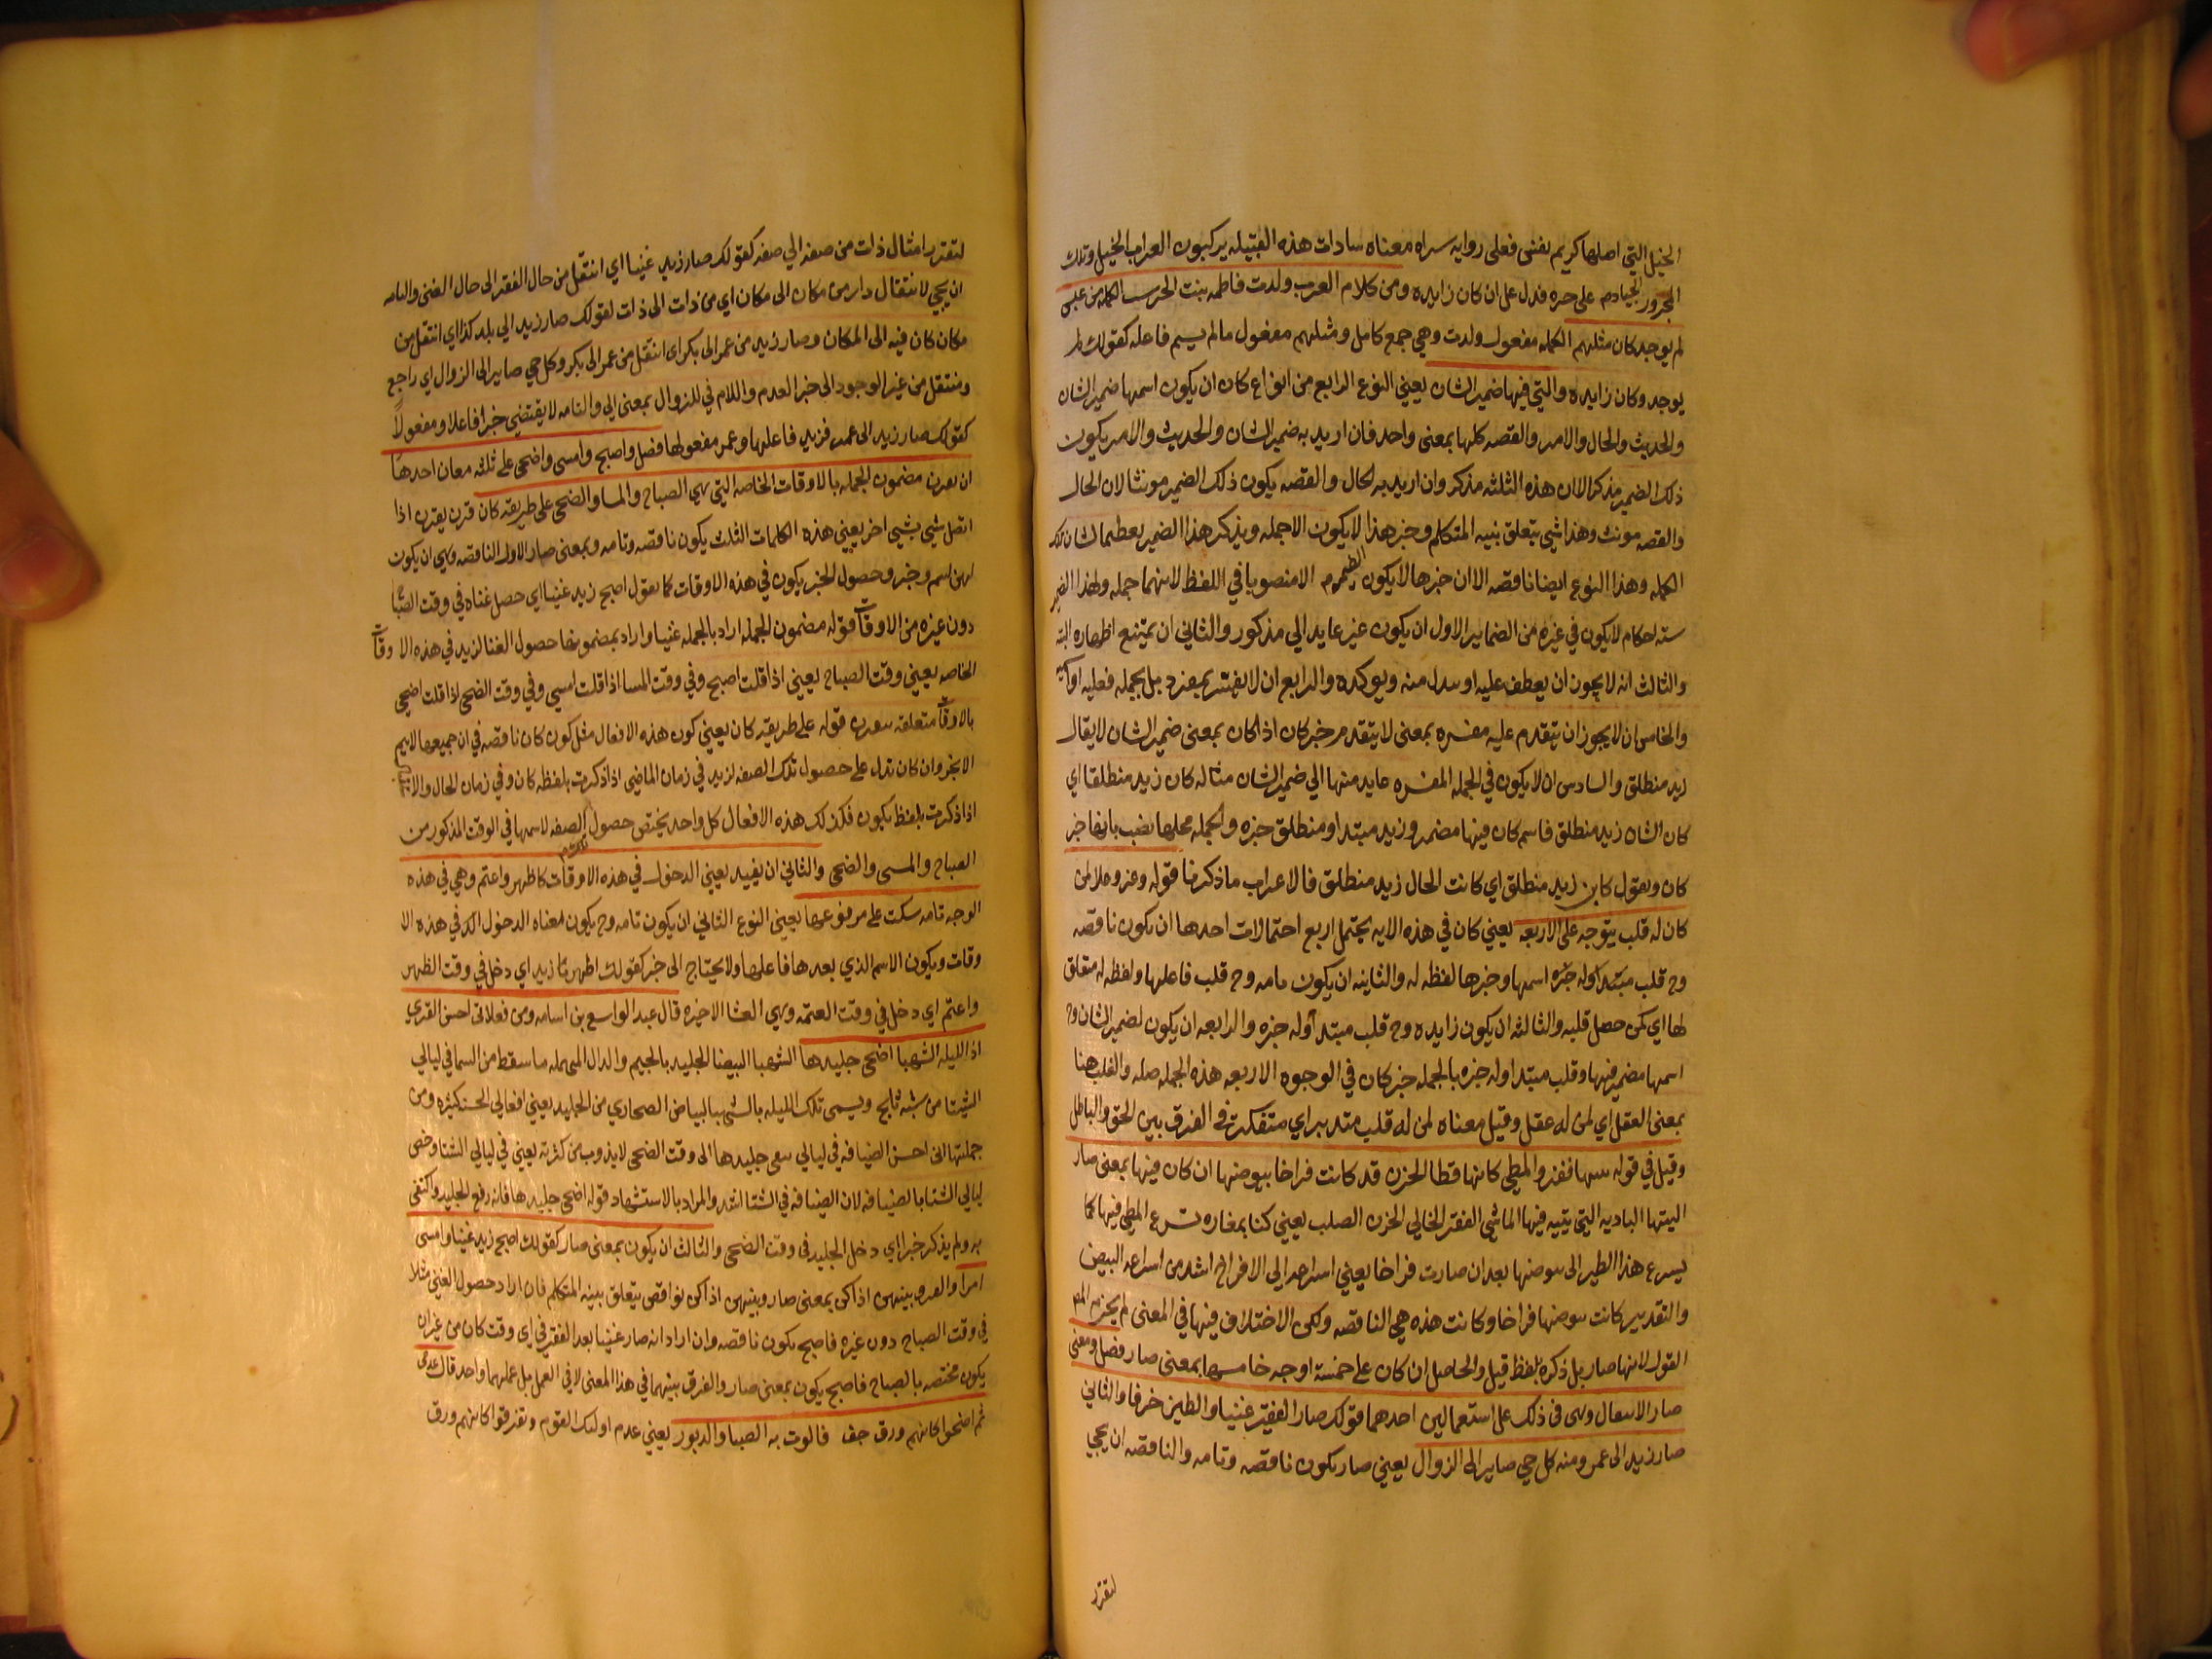 الخيل التي اصلها كريم يفنى فعلى روايه سراه معناه سادات هذه القبيله يركبون العراب الخيل وتلك
المجرور الجيادم على حره فدل على ان كان زايده ومن كلام العرب ولدت فاطمه بنت الخرسب الكمله من عبس
لم يوجد كان مثلهم الكمله مفعول ولدت وهي جمع كامل ومثلهم مفعول مالم يسم فاعله كقولك لم
يوجد وكان زايده والتي فيها ضمير الشان يعني النوع الرابع من انواع كان ان يكون اسمها ضمير الشان
والحديث والحال والامر والقصه كلها بمعنى واحد فان اريد به ضمير الشان والحديث والامر يكون
ذلك الضمير مذكرا لان هذه الثلثه مذكر وان اريد به لحال والقصه يكون ذلك الضمير مونثا لان الحال
والقصه مونث وهذا شي يتعلق بنيه المتكلم وخبر هذا لا يكون الا جمله ويذكر هذا الضمير تعظيما لشان تلك
الكمله وهذا النوع ايضا ناقصه الا ان خبرها لا يكون الا منصوبا في اللفظ لانها جمله ولهذا الضمير
سته احكام لا يكون في غيره من الضماير الاول ان يكون غير عايد الي مذكور والثاني ان يمتنع اظهاره البته
والثالث انه لا يجوز ان يعطف عليه او يبدل منه ويوكده والرابع ان لا يفسر بمفرد بل بجمله فعليه او اسميه
والخامس ان لا يجوز ان يتقدم عليه مفسره بمعنى لا يتقدم خبر كان اذا كان بمعنى ضمير الشان لا يقال
زيد منطلق والسادس ان لا يكون في الجمله المفسره عايد منها الي ضمير الشان مثاله كان زيد منطلقا اي
كان الشان زيد منطلق فاسم كان فيها مضمر وزيد مبتدا ومنطلق خبره والجمله محلها نصب بانها خبر
كان وتقول كان زيد منطلق اي كانت الحال زيد منطلق فالاعراب ما ذكرنا قوله وعز وعلا لمن
كان له قلب يتوجه على الاربعه يعني كان في هذه الايه يحتمل اربع احتمالات احدها ان تكون ناقصه
وح قلب مبتدا وله خبره اسمها وخبرها لفظه له والثانيه ان يكون تامه وح قلب فاعلها ولفظه له متعلق
لها اي لمن حصل قلبه والثالثه ان يكون زايده وح قلب مبتدا وله خبره والرابعه ان يكون لضمير الشان وح
اسمها مضمير فيها وقلب مبتدا وله خبره بالجمله خبر كان في الوجوه الاربعه هذه الجمله صله والقلب هنا
بمعنى العقل اي لمن له عقل وقيل معناه لمن له قلب متدبر اي متفكرة في الفرق بين الحق والباطل
وقيل في قوله بتيها قفر والمطي كانها قطا الحزن قد كانت فراخا بيوضها ان كان فيها بمعنى صار
التيها الباديه التي يتيه فيها الماشي القفر الخالي الحزن الصلب يعني كنا بمغاره تسرع المطي فيها كما
يسرع هذا الطير الى بيوضها بعد ان صارت فراخا يعني اسراعه الي الافراخ اشد من اسراعه البيض
والتقدير كانت بيوضها فراخا وكانت هذه هي الناقصه ولكن الاختلاف فيها في المعنى لم يجزم المص
القول لانها صار بل ذكره بلفظ قيل والحاصل ان كان على خمسة اوجه خامسها بمعنى صار فصل ومعنى
صار الانتقال وهي في ذلك على استعمالين احدهما قولك صار الفقير غنيا والطين خزفا والثاني
صار زيد الى عمرو ومنه كل حي صاير الى الزوال يعني صار تكون ناقصه وتامه والناقصه ان يجي
لتقرر
لتقرر انتقال ذات من صفه الي صفه كقولك صار زيد غنيا اي انتقل من حال الفقر الى حال الغنى والتامه
ان يجي لانتقال دار من مكان الى مكان اي من ذات الى ذات لقولك صار زيد الي بلد كذا اي انتقل من
مكان كان فيه الى المكان وصار زيد من عمر الى بكر اي انتقل من عمر الى بكر وكل حي صاير الى الزوال اي راجع
ومنتقل من غير الوجود الى خبر العدم واللام في للزوال بمعنى الى والتامه لا يقتضي خبرا فاعلا ومفعولا
كقولك صار زيد الى عمر فزيد فاعلها وعمر مفعولها فصل واصبح وامسى واضحى على ثلثه معان احدها
ان يقرن مضمون الجمله بالاوقات الخاصه التي هي الصباح والمسا والضحى على طريقه كان قرن يقرن اذا
اتصل شيي بشيي اخر يعني هذه الكلمات الثلث يكون ناقصه وتامه وبمعنى صار الاول الناقصه وهي ان يكون
لهن اسم وخبر وحصول الخبر يكون في هذه الاوقات كما تقول اصبح زيد غنيا اي حصل غناه في وقت الصباح
دون غيره من الاوقات قوله مضمون الجمله اراد بالجمله غنيا واراد بمضمونها حصول الغنا لزيد في هذه الاوقات
الخاصه يعني وقت الصباح يعني اذا قلت اصبح وفي وقت المسا اذا قلت امسي وفي وقت الضحى اذا قلت اضحى
بالاوقات متعلقه بيقرن قوله على طريقه كان يعني كون هذه الافعال مثل كون كان ناقصه في ان جميعها لا يتم
الا بخبر وان كان تدل على حصول تلك الصفه لزيد في زمان الماضي اذا ذكرت بلفظه كان وفي زمان الحال والاستقبال
اذا ذكرت بلفظ يكون فكذلك هذه الافعال كل واحد يختص حصول الصفه لاسمها في الوقت المذكور من
الصباح والمسى والضحى والثاني ان يفيد يعني الدخول في هذه الاوقات كاظهر واعتم وهي في هذه
الوجه تامه سكت على مرفوعها يعني النوع الثاني ان يكون تامه وح يكون معناه الدخول في هذه الا
وقات ويكون الاسم الذي بعدها فاعلها ولا يحتاج الى خبر كقولك اظهر زيد اي دخل في وقت الظهر
واعتم اي دخل في وقت العتمه وهي العشا الاخيره قال عبد الواسع بن اسامه ومن فعلاتي احسن القري
اذا الليله الشهبا اضحى جليدها الشهبا البيضا الجليد بالجيم والدال المهمله ما سقط من السما في ليالي
الشتا من شبه ثلج ويسمى تلك الليله بالشهبا لبياض الصحاري من الجليد يعني افعالي الحسن كثيره ومن
جملتها اني احسن الضيافه في ليالي يبقى جليدها الى وقت الضحى لا يذوب من كثرته يعني في ليالي الشتا وخص
ليالي الشتا بالضيافه لان الضيافه في الشتا اشد والمراد بالاستشهاد قوله اضحى جليدها فانه رفع الجليد واكتفى
به ولم يذكر خبرا اي دخل الجليد في وقت الضحى والثالث ان يكون بمعنى صار كقولك اصبح زيد غنيا وامسى
اميرا والفرق بينهن اذا كن بمعنى صار وبينهن اذا كن نواقص يتعلق بنيه المتكلم فان اراد حصول الغنى مثلا
في وقت الصباح دون غيره فاصبح تكون ناقصه وان اراد انه صار غنيا بعد الفقر في اي وقت كان من غير ان
يكون مختصه بالصباح فاصبح يكون بمعنى صار والفرق بينهما في هذا المعنى لا في العمل بل عملهما واحد قال عدي
ثم اضحوا كانهم ورق جف فالوت به الصبا والدبور يعني عدم اولئك القوم وتفرقوا كانهم ورق